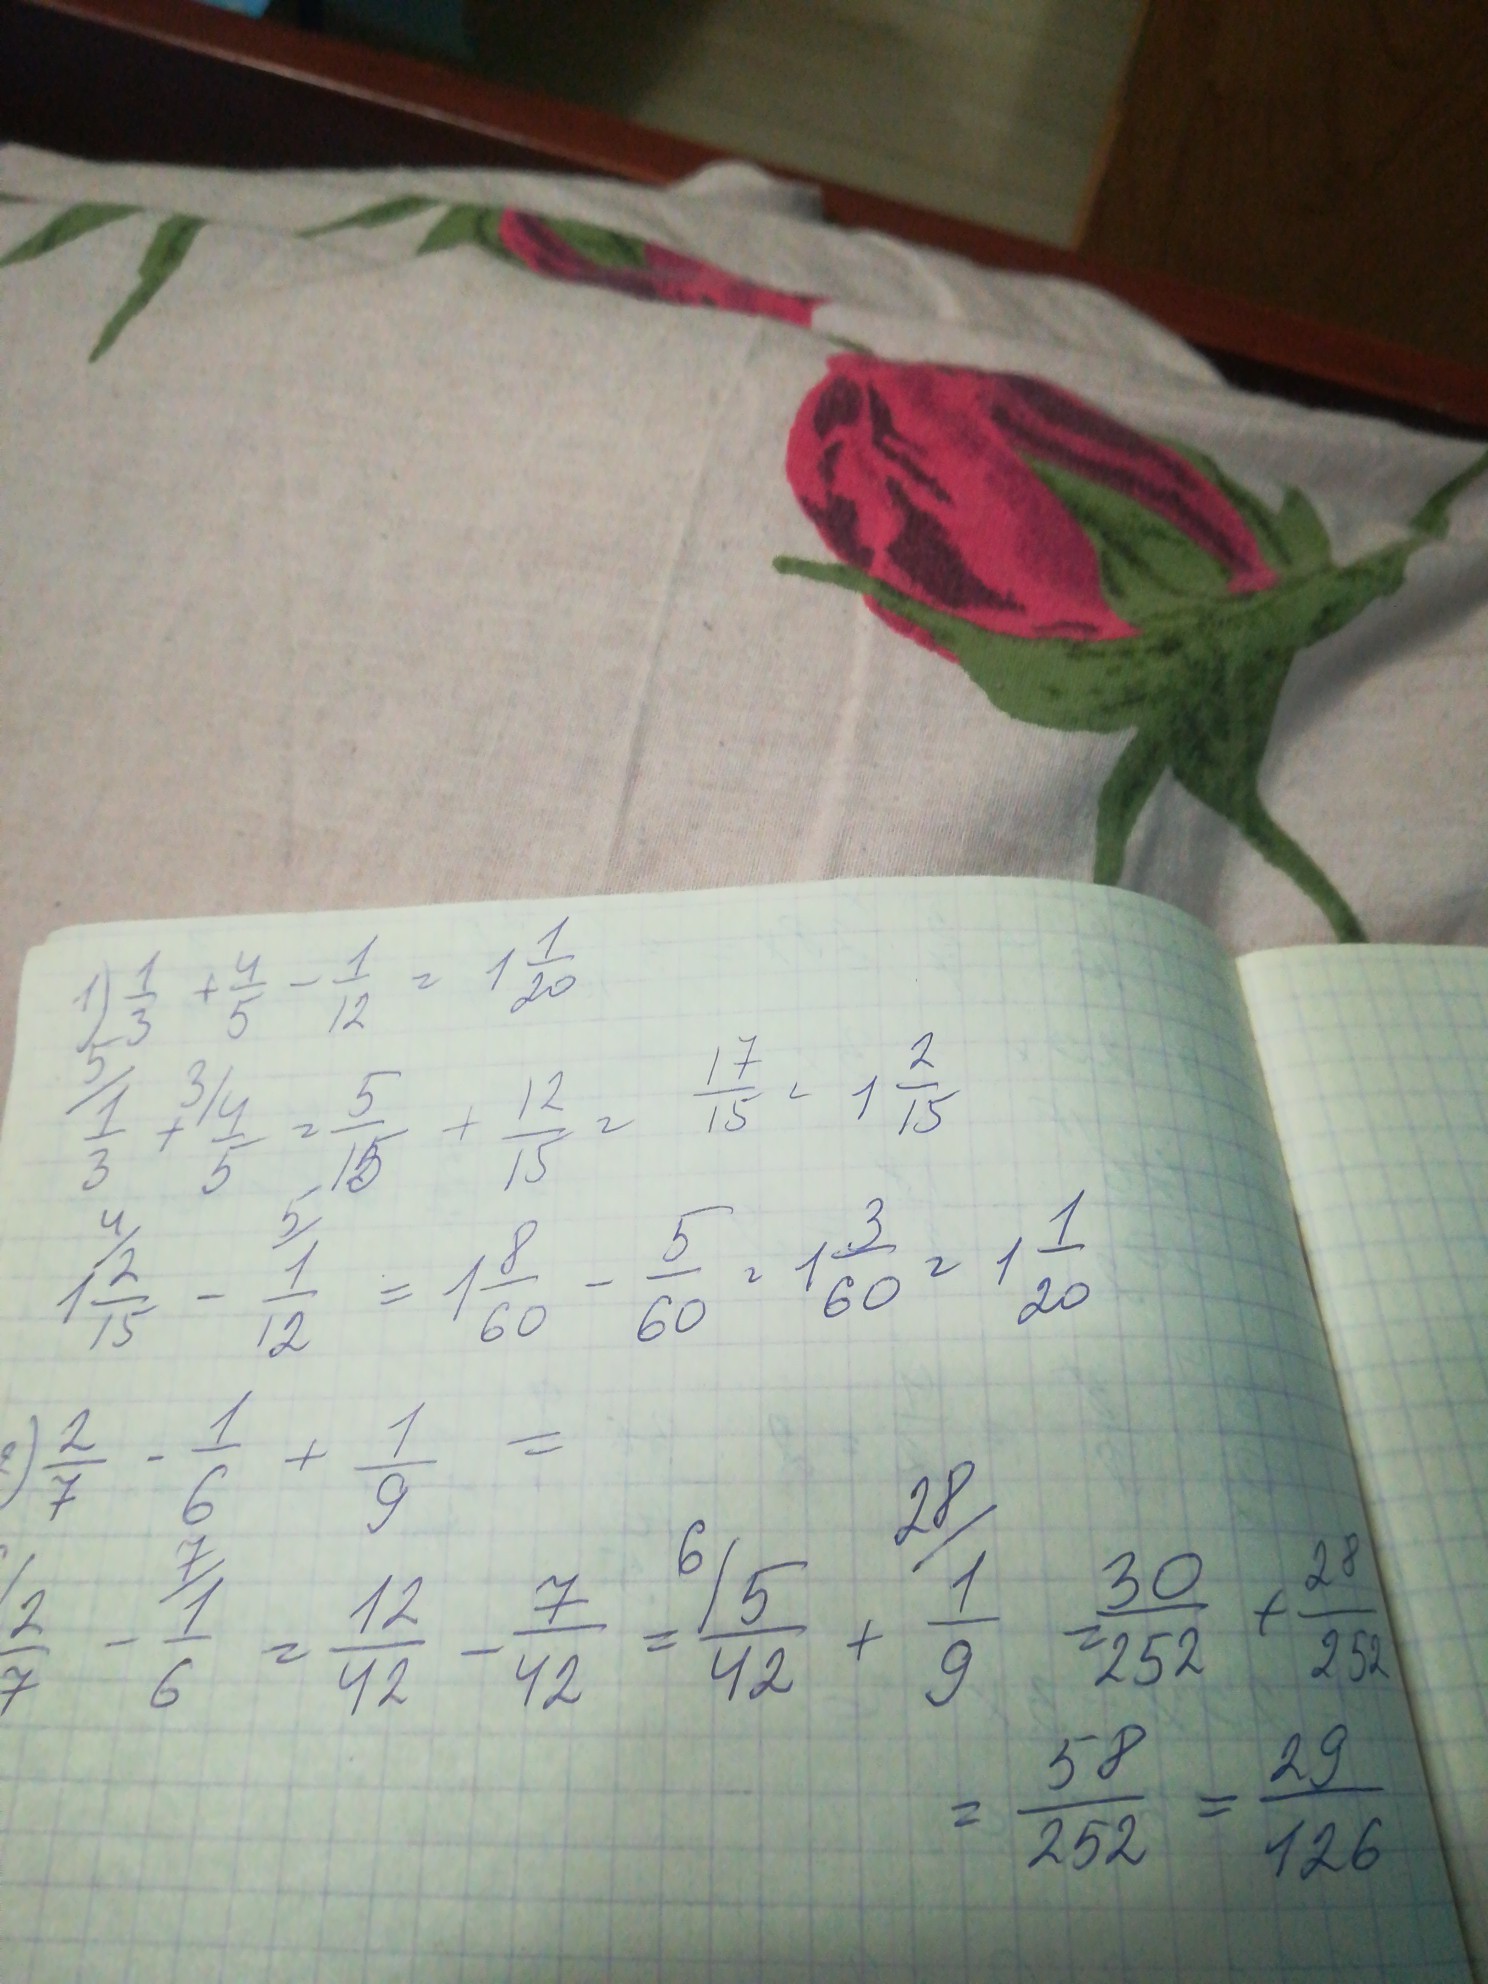 1) 1/3 + 4/5 - 1/12 = 1 1/20
5/ 1/3 + 3/ 4/5 = 5/15 + 12/15 = 17/15 = 1 2/15
1 4/ 2/15 - 5/ 1/12 = 1 8/60 - 5/60 = 1 3/60 = 1 1/20
) 2/7 - 1/6 + 1/9 =
/ 2/7 - 7/ 1/6 = 12/42 - 7/42 = 6/ 5/42 + 28/ 1/9 = 30/252 + 28/252
= 58/252 = 29/126